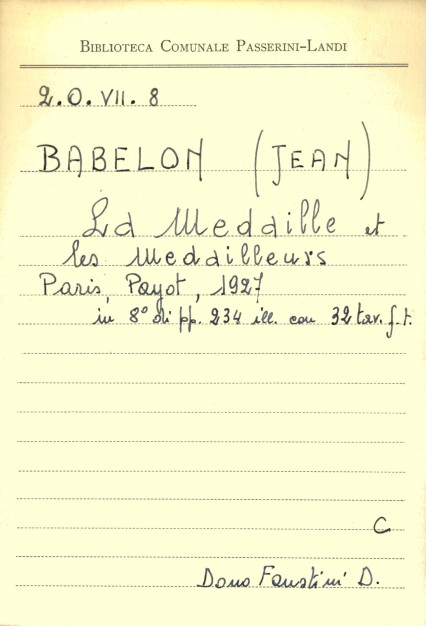 BIBLIOTECA COMUNALE PASSERINI-LANDI
2.O.VII.8
BABELON (JEAN)
La Medaille et
les Medailleurs
Paris, Payot, 1927
in 8° di pp. 234 ill. con 32 tav. f.t.
C
Dono Faustini D.